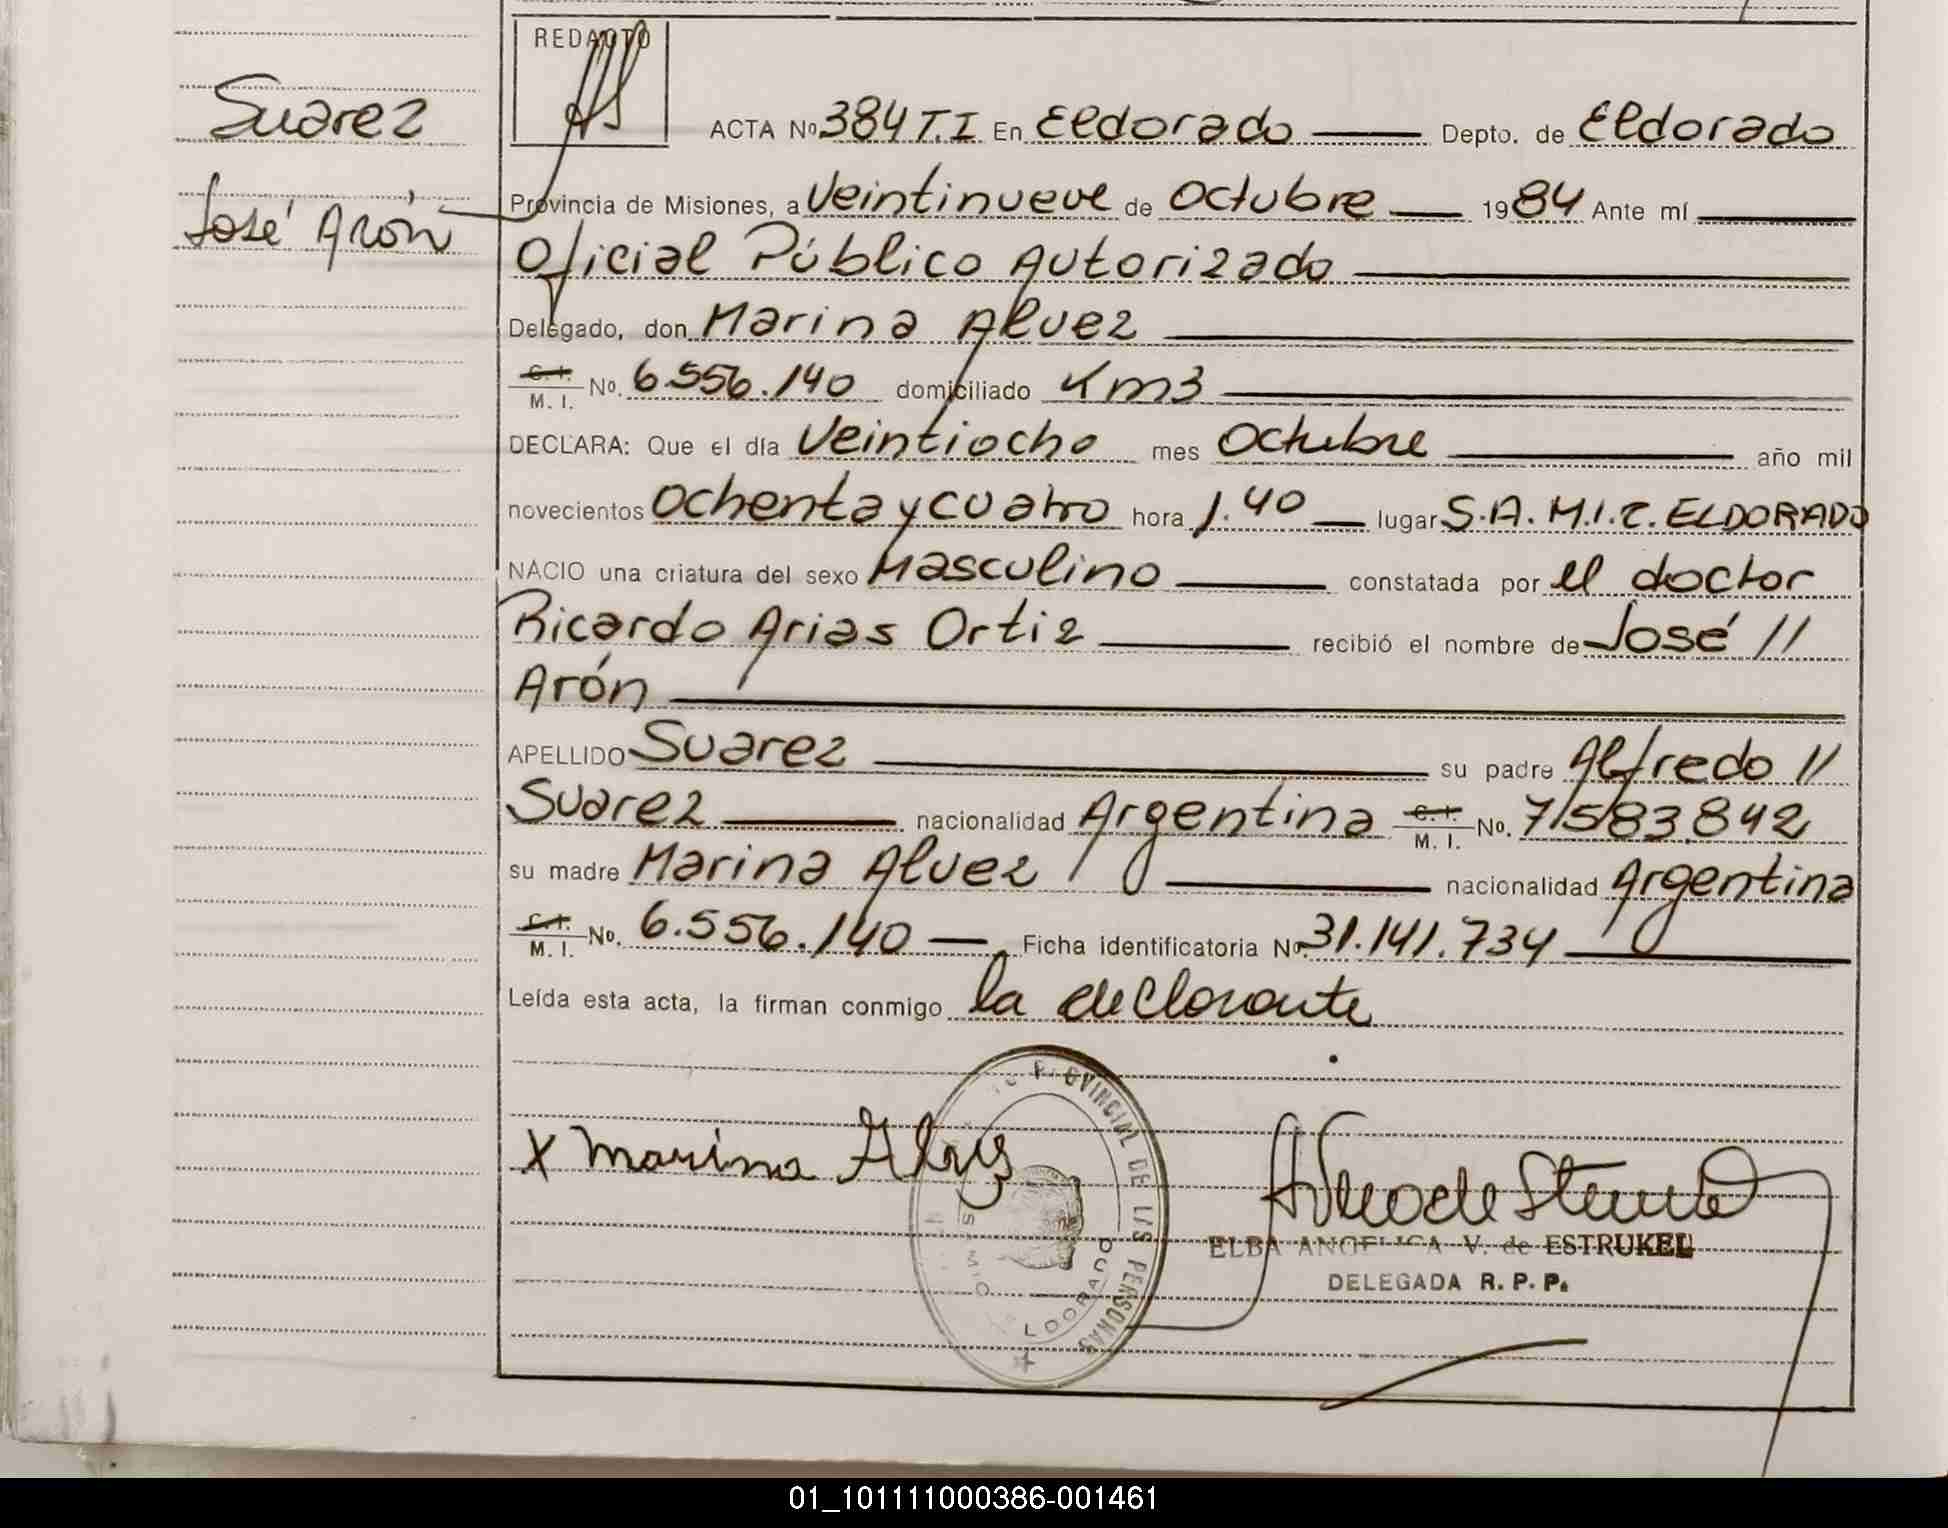 REDACTO
Suarez
ACTA Nº 384 T.I En Eldorado Depto. de Eldorado
José Arón
Provincia de Misiones, a Veintinueve de Octubre 1984 Ante mí
Oficial Público Autorizado
Delegado, don Marina Alvez
C. I. M. I. No. 6.556.140 domiciliado Km3
DECLARA: Que el día Veintiocho mes Octubre año mil
novecientos Ochenta y cuatro hora 1.40 lugar S.A.M.I.C. ELDORADO
NACIO una criatura del sexo Masculino constatada por el doctor
Ricardo Arias Ortiz recibió el nombre de José //
Arón
APELLIDO Suarez su padre Alfredo //
Suarez nacionalidad Argentina C. I. M. I. No. 7.583.842
su madre Marina Alvez nacionalidad Argentina
C. I. M. I. No. 6.556.140 Ficha identificatoria No. 31.141.734
Leída esta acta, la firman conmigo la declarante
PROVINCIAL DE LAS PERSONAS
ELDORADO
X Marina Alvez
ELBA ANGELICA V. de ESTRUKEL
DELEGADA R. P. P.
01_101111000386-001461